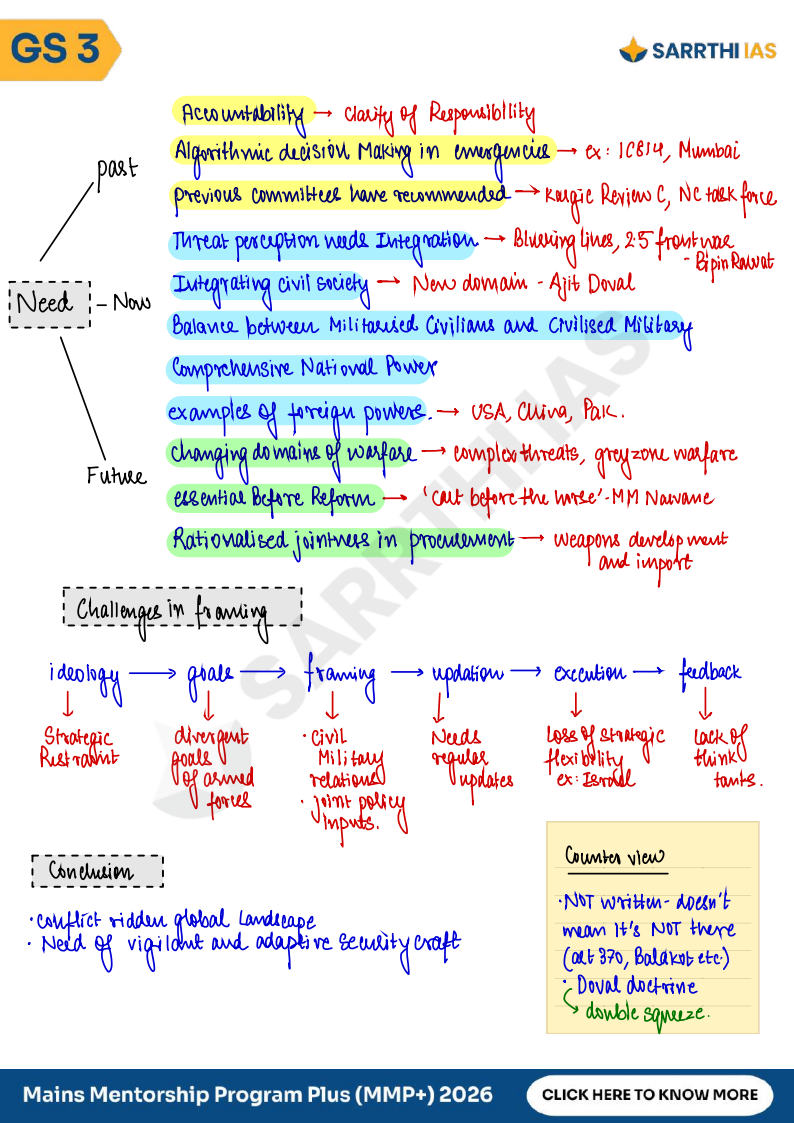 GS 3
SARRTHI IAS
past
Accountability → Clarity of Responsibility
Algorithmic decision Making in emergencies → ex: IC814, Mumbai
previous committees have recommended → Kargil Review C, NC task force
Need
- Now
Threat perception needs Integration → Blurring lines, 2.5 front war
- Bipin Rawat
Integrating civil society → New domain - Ajit Doval
Balance between Militarised Civilians and Civilised Military
Comprehensive National Power
examples of foreign powers. → USA, China, Pak.
Future
changing domains of warfare → complex threats, greyzone warfare
essential Before Reform → 'cart before the horse' - MM Navane
Rationalised jointness in procurement → weapons development
and import
SARRTHI IAS
Challenges in framing
ideology → goals → framing → updation → execution → feedback
Strategic
Restraint
divergent
goals
of armed
forces
· Civil
Military
relations
· Joint policy
inputs.
Needs
regular
updates
Loss of strategic
flexibility
ex: Israel
lack of
think
tanks.
Conclusion
· conflict ridden global landscape
· Need of vigilant and adaptive security craft
Counter view
· NOT written - doesn't
mean It's NOT there
(art 370, Balakot etc.)
· Doval doctrine
↳ double squeeze.
Mains Mentorship Program Plus (MMP+) 2026
CLICK HERE TO KNOW MORE